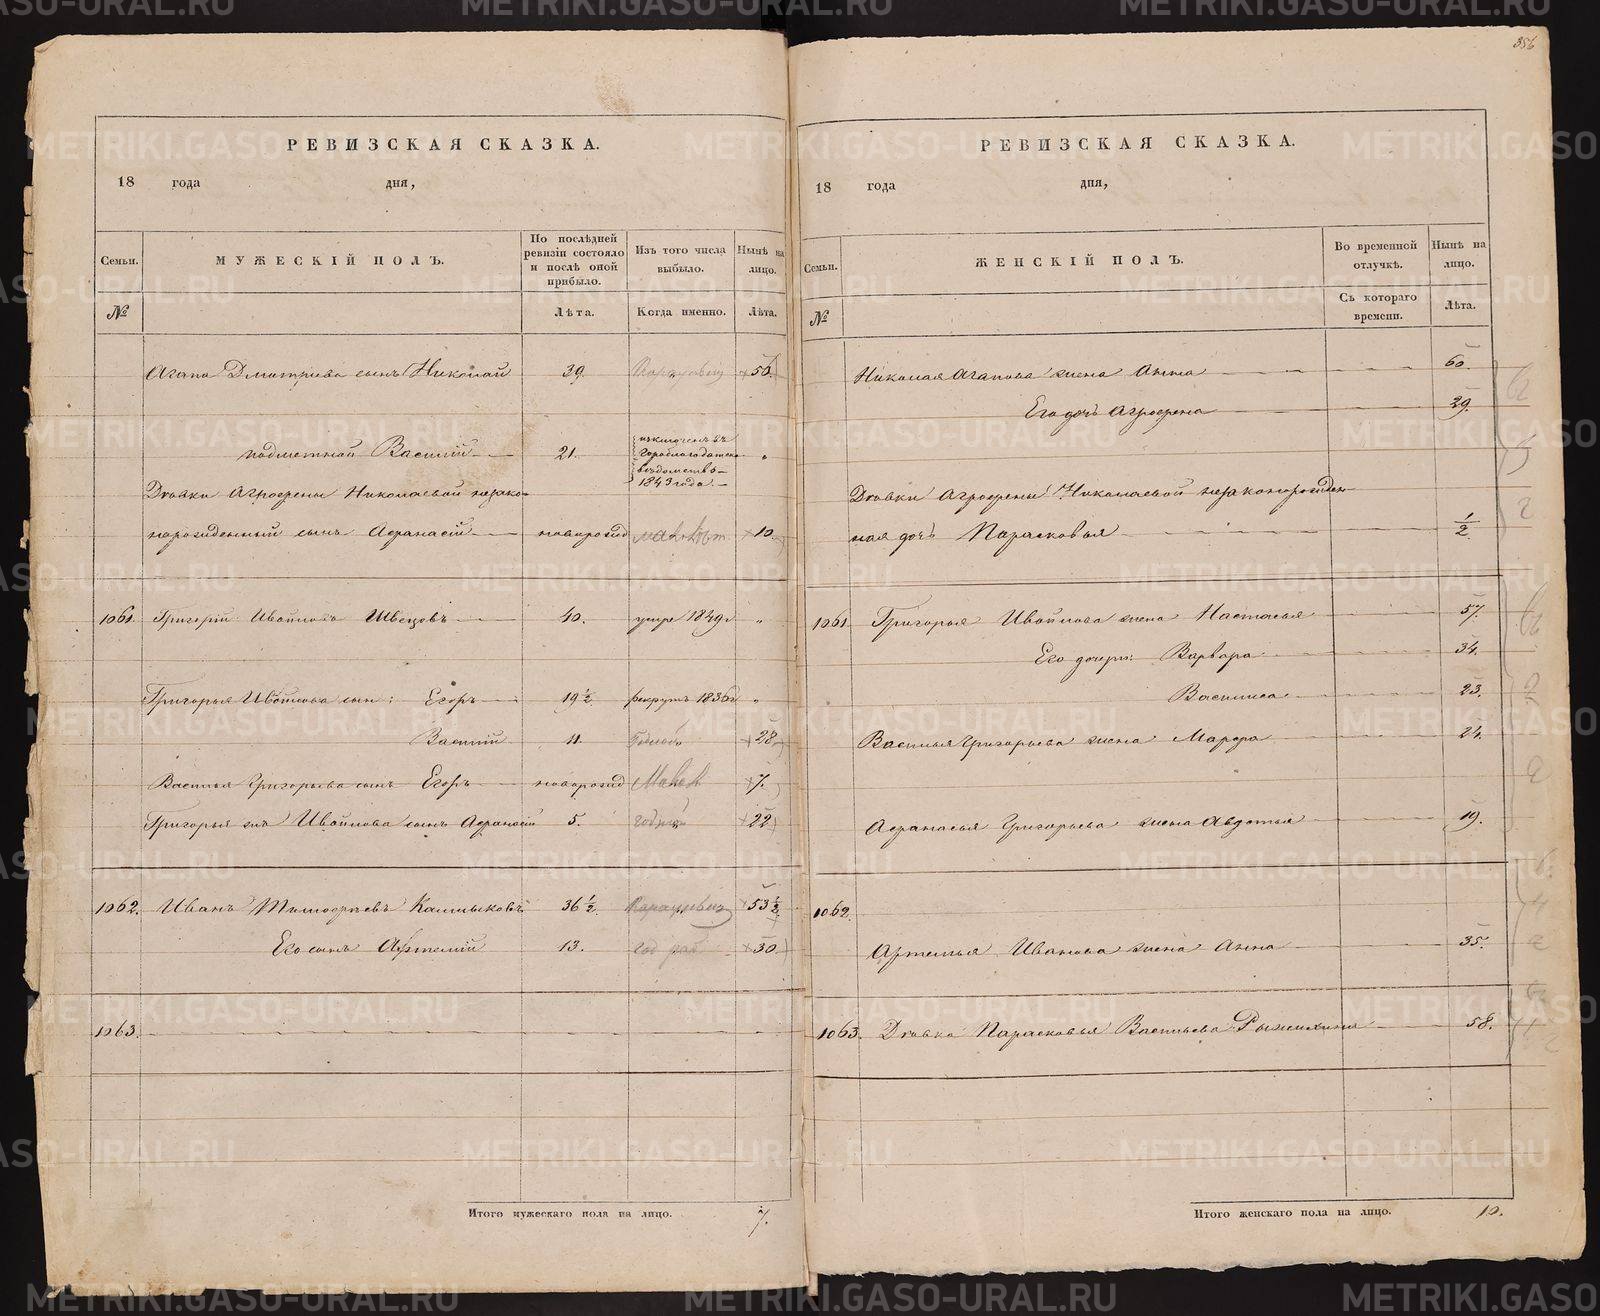 356
РЕВИЗСКАЯ СКАЗКА.
18 года дня,
Семьи.
МУЖЕСКІЙ ПОЛЪ.
По послѣдней ревизіи состояло и послѣ оной прибыло.
Изъ того числа выбыло.
Нынѣ на лицо.
№
Лѣта.
Когда именно.
Лѣта.
Агапа Дмитріева сынъ Николай 39. 56.
подметной Василій 21. 1843 года „
Дѣвки Агрофены Николаевой незако-
норожденный сынъ Афанасій новорожд 10.
1061. Григорій Ивойловъ Швецовъ 40. умре 1849г „
Григорья Ивойлова сын: Егоръ 19 ½. рекрутъ 1836г „
Василій 11. 28.
Василья Григорьева сынъ Егоръ новорожд 7.
Григорья Ивойлова сынъ Афанасій 5. 22
1062. Иванъ Тимофѣевъ Калмыковъ 36 ½. 53 ½
Его сынъ Артемій 13. 30
1063.
Итого мужескаго пола на лицо. 7.
РЕВИЗСКАЯ СКАЗКА.
18 года дня,
Семьи.
ЖЕНСКІЙ ПОЛЪ.
Во временной отлучкѣ.
Нынѣ на лицо.
№
Съ котораго времени.
Лѣта.
Николая Агапова жена Анна 60.
Его дочь Агрофена 29.
Дѣвки Агрофены Николаевой незаконорожден-
ная дочь Парасковья ½
1061. Григорья Ивойлова жена Настасья 57.
Его дочери: Варвара 34.
Василиса 23.
Василья Григорьева жена Марфа 24.
Афанасья Григорьева жена Авдотья 19.
1062.
Артемья Иванова жена Анна 35.
1063. Дѣвка Парасковья Васильева 58.
Итого женскаго пола на лицо. 10.
METRIKI.GASO-URAL.RU